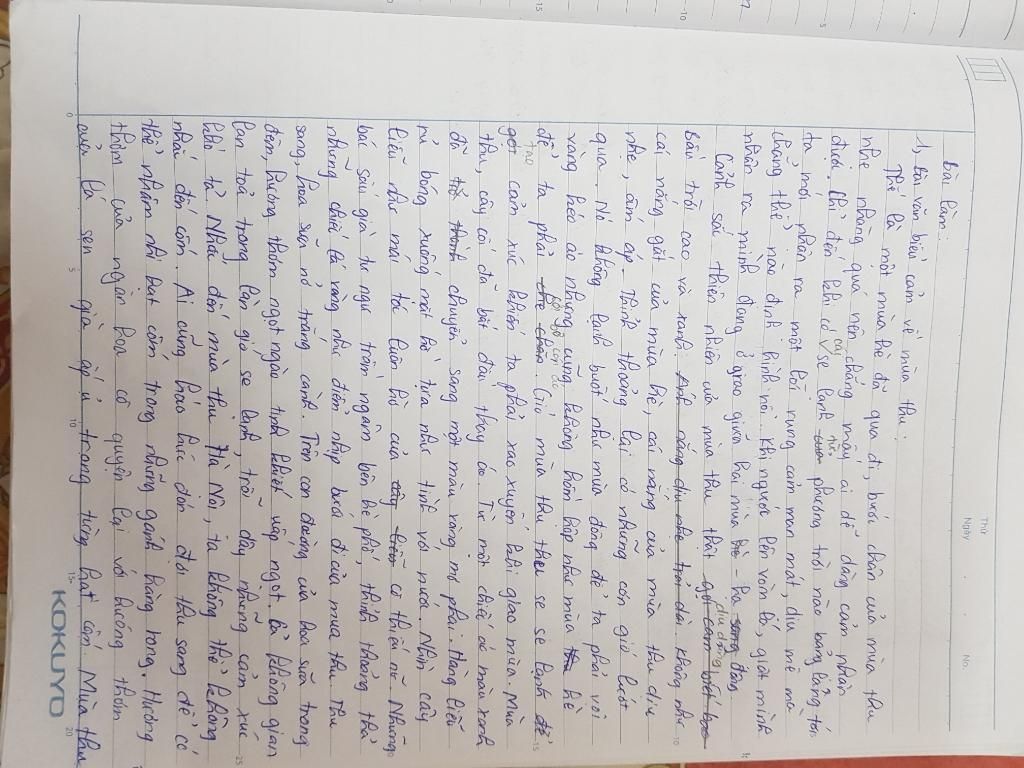 Thứ
Ngày
No.
Bài làm:
1, Bài văn biểu cảm về mùa thu.
Thế là một mùa hè đã qua đi, bước chân của mùa thu
nhẹ nhàng quá nên chẳng mấy ai dễ dàng cảm nhận
được. Chỉ đến khi có cái se lạnh từ phương trời nào bảng lảng tới,
ta mới nhận ra một lối rung cảm man mát, dịu mê mà
chẳng thể nào định hình nổi. Khi người lên vòm lá, giật mình
nhận ra mình đang ở giao giữa hai mùa hè - thu đang
Cảnh sắc thiên nhiên của mùa thu thật dịu dàng.
Bầu trời cao và xanh. Ánh nắng dịu nhẹ trải dài. Không như
cái nắng gắt của mùa hè, cái nắng của mùa thu dịu
nhẹ, ấm áp. Thỉnh thoảng lại có những cơn gió lướt
qua. Nó không lạnh buốt như mùa đông để ta phải vội
vàng kéo áo nhưng cũng không hầm hập như mùa hè
để ta phải khó chịu. Gió mùa thu se lạnh
tạo cảm xúc khiến ta phải xao xuyến khi giao mùa. Mùa
thu, cây cối đã bắt đầu thay áo. Từ một chiếc áo màu xanh
đã chuyển sang một màu vàng mơ phai. Hàng liễu
rủ bóng xuống mặt hồ tựa như tình với nước. Nhìn cây
liễu như mái tóc luôn hù của cô thiếu nữ. Những
bác sấu già tư ngư trầm ngâm bên hè phố, thỉnh thoảng thả
những chiếc lá vàng như điểm nhịp bước đi của mùa thu. Thu
sang, hoa sữa nở trắng cành. Trên con đường của hoa sữa trong
đêm, hương thơm ngọt ngào tinh khiết cả không gian
lan toả trong làn gió se lạnh, trỗi dậy những cảm xúc
khó tả. Nhắc đến mùa thu Hà Nội, ta không thể không
nhắc đến cốm. Ai cũng háo hức đón đợi thu sang để có
thể nhâm nhi hạt cốm trong những gánh hàng rong. Hương
thơm của ngàn hoa cỏ quyện lại với hương thơm
của lá sen già ấp ủ trong từng hạt cốm. Mùa thu
KOKUYO